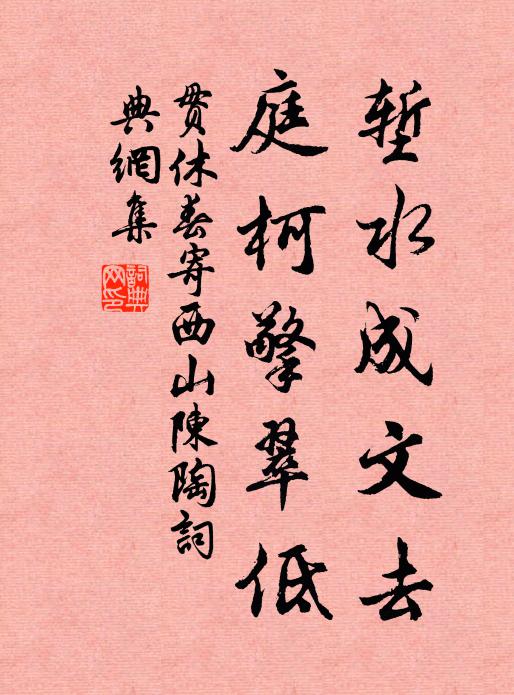 塹水成文去
庭柯擎翠低
貫休春寄西山陳陶詞
典網集
詞典
网印